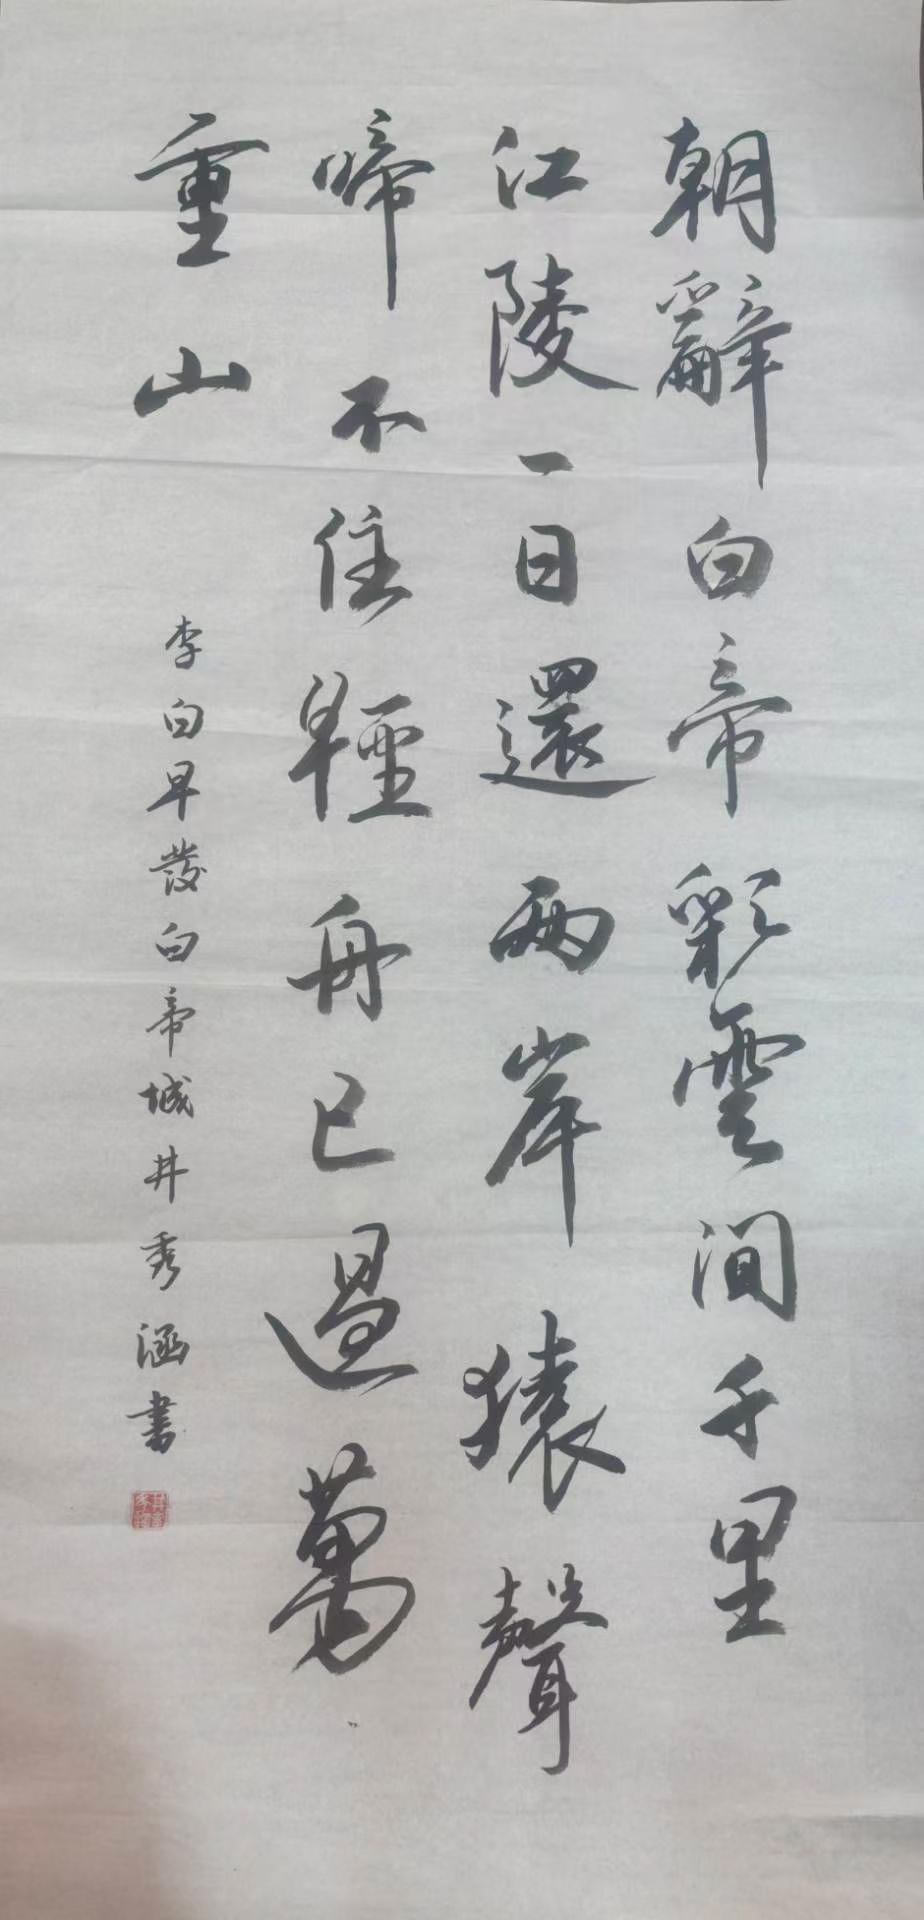 朝辭白帝彩雲間千里
江陵一日還兩岸猿聲
啼不住輕舟已過萬
重山
李白早發白帝城井秀涵書